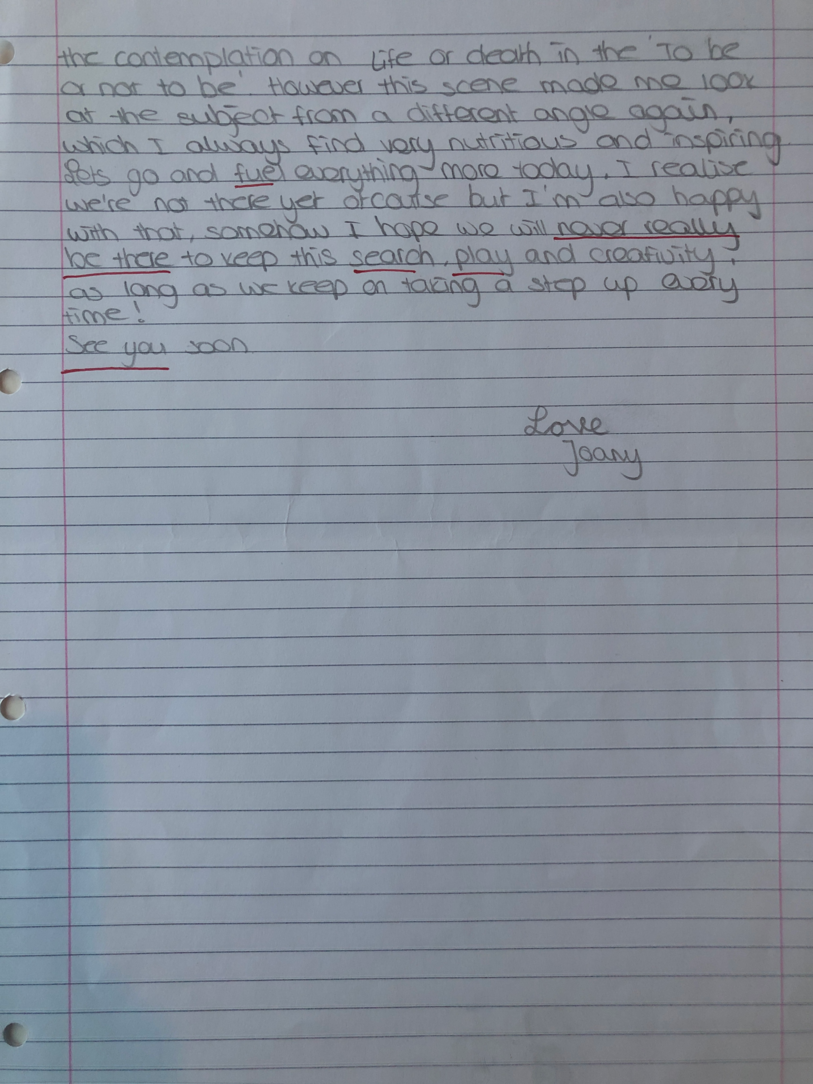 the contemplation on Life or death in the 'To be
or not to be'. However this scene made me look
at the subject from a different angle again,
which I always find very nutritious and inspiring
lets go and fuel everything more today. I realise
we're not there yet ofcourse but I'm also happy
with that, somehow I hope we will never really
be there to keep this search, play and creativity,
as long as we keep on taking a step up every
time!
See you soon
Love
Joany